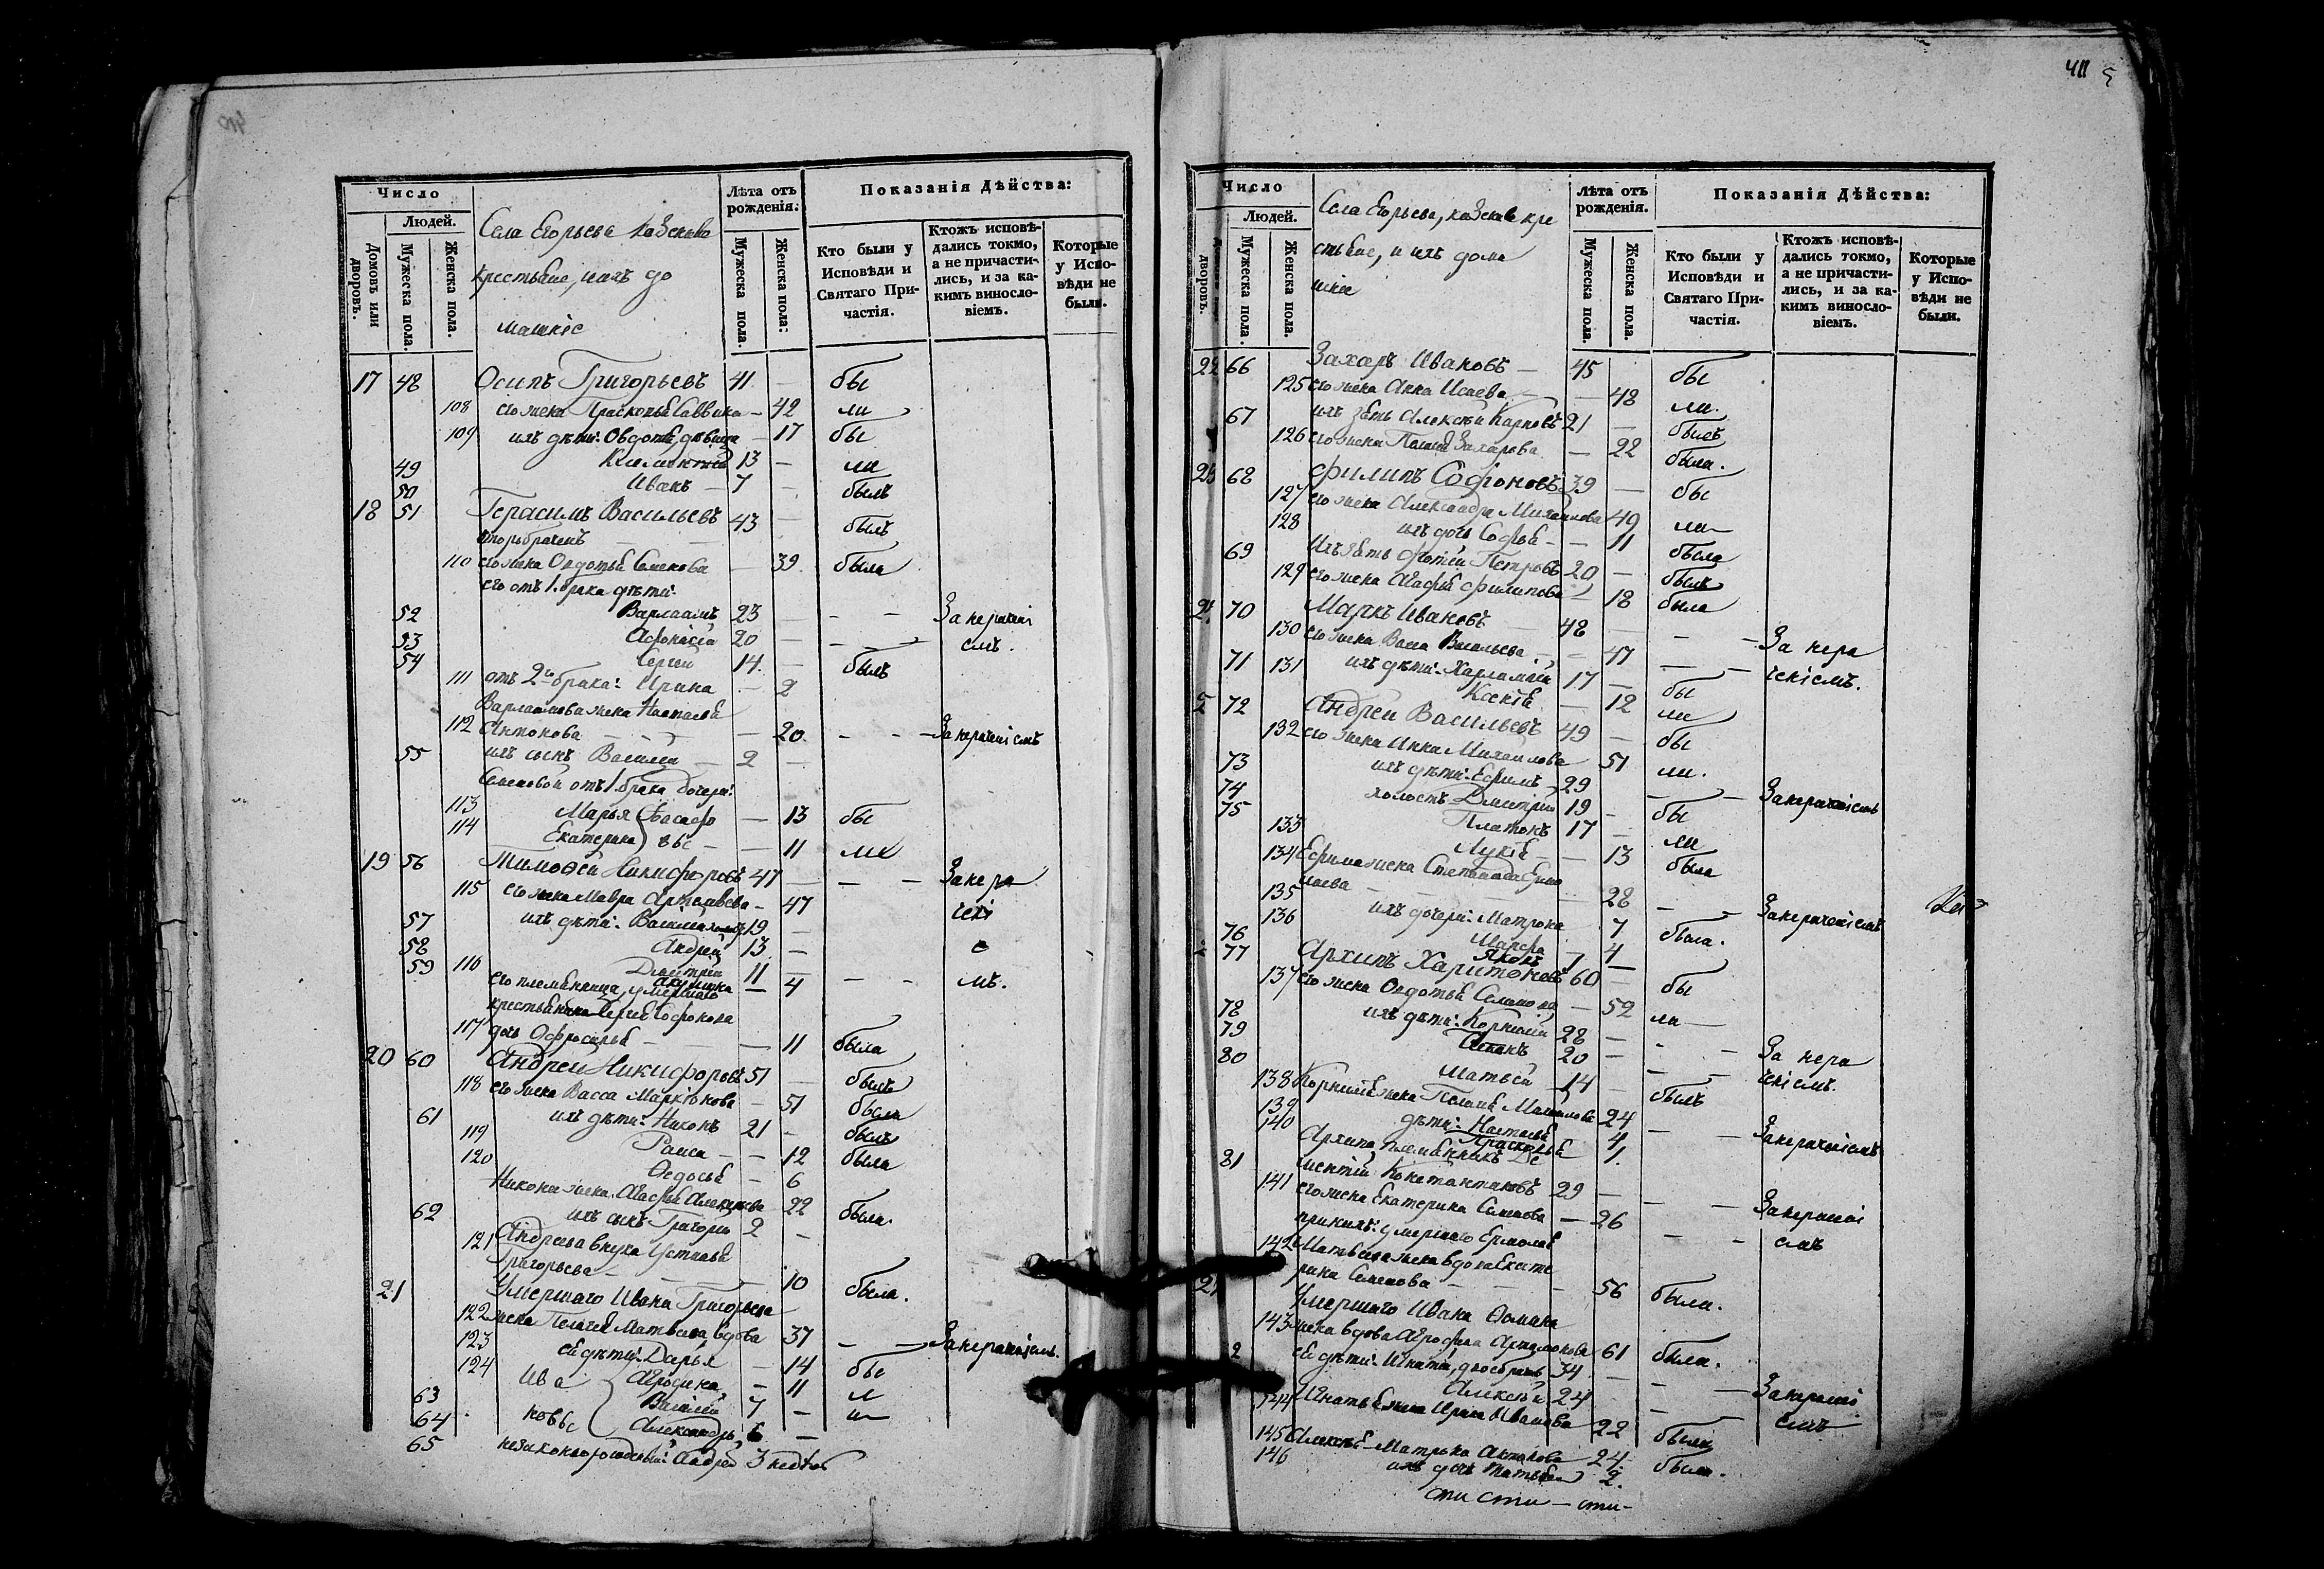 411
Число
Людей.
Домовъ или дворовъ.
Мужеска пола.
Женска пола.
Села Егорьева казенные
крестьяне, и ихъ до
машніе
Лѣта отъ рожденія:
Мужеска пола.
Женска пола:
Показанія Дѣйства:
Кто были у Исповѣди и Святаго Причастія.
Ктожъ исповѣдались токмо, а не причастились, и за какимъ винословіемъ.
Которые у Исповѣди не были.
17 48 Осипъ Григорьевъ 41 — бы
108 его жена Прасковья Саввина — 42 ли
109 ихъ дѣти: Овдотья девица — 17 бы
49 13 — ли
50 Иванъ — 7 — былъ
18 51 Герасимъ Васильевъ 43 — былъ
второбрачный
110 его жена Овдотья Семенова — 39 была
его отъ 1. брака дѣти:
52 Варлаамъ 23 — — За нерачені
53 Афонасій 20 — — емъ.
54 Сергей 14. — былъ
111 отъ 2го брака: Ирина — 2
Варлаамова жена Настасья
112 Антонова — 20. — — За нераченіемъ
55 ихъ сынъ Василій — 2 —
Семеновой отъ 1. брака дочери:
113 Марья — 13 бы
114 Екатерина — 11 ли
19 56 Тимофей Никифоровъ 47 — — За нера
115 его жена Мавра Артемьева — 47 чені
57 ихъ дѣти: Василій 19 —
58 Андрей 13 — е
59 Дмитрій 11 —
116 Акулина — 4 — — мъ.
его племянница, умершаго
крестьянина Сергея Софонова
117 дочь Офросинья — 11 была
20 60 Андрей Никифоровъ 51 — былъ
118 его жена Васса Маркіонова — 51 была
61 ихъ дѣти: Никонъ 21 — былъ
119 Раиса — — 12 была
120 Ѳедосья — 6
Никона жена Агафья 22 была.
62 ихъ сынъ Григорій 2 —
121 Андреева внука Устинья
Григорьева — 10 была.
21 Умершаго Ивана Григорьева
122 жена Пелагея Матвеева, вдова 37 — — За нераченіемъ.
123 ея дѣти: Дарья — 14 бы
124 Ива Агрофена — 11 л
63 новы Василій 7 — и
64 Александръ 6 —
65 незаконнорожденный: Андрей 3 недѣл
Число
Людей.
дворовъ.
Мужеска пола.
Женска пола.
Села Егорьева, казенные кре
стьяне, и ихъ дома
шніе
Лѣта отъ рожденія.
Мужеска пола.
Женска пола.
Показанія Дѣйства:
Кто были у Исповѣди и Святаго Причастія.
Ктожъ исповѣдались токмо, а не причастились, и за какимъ винословіемъ.
Которые у Исповѣди не были.
22 66 Захаръ Ивановъ — 45 бы
125 его жена Анна Исаева — — 48 ли.
67 ихъ зять Алексѣй Карповъ 21 — былъ
126 его жена Захарова — 22 была.
23 68 Филипъ Софоновъ 39 — бы
127 его жена Александра Михайлова 49 ли
128 ихъ дочь Софья — — 11 была
69 Ихъ зять Фотій Петровъ 20 — былъ
129 его жена Агафья Филипова — 18 была
70 Маркъ Ивановъ — 48 — — За нера
130 его жена Васса Васильева — — 47 — — ченіемъ.
71 ихъ дѣти: Харламій 17 — бы
131 Ксенія — 12 ли
72 Андрей Васильевъ 49 — бы
132 его жена Анна Михайлова 51 ли.
73 ихъ дѣти: Ефимъ 29 — — За нераченіемъ
74 холостъ Дмитрій 19 — бы
75 Платонъ 17 — ли
133 Лукія — — 13 была
134 Ефима жена Степанида
— 28 — — За нераченіемъ
135 ихъ дочери: Матрона 7 была.
136 Марфа 4
76 Яковъ 7 —
77 Архипъ Харитоновъ 60 — бы
137 его жена Овдотья — 52 ли —
78 ихъ дѣти: Корнилій 28 — — За нера
79 20 — — ченіемъ.
80 Матвей 14 — былъ
138 Корнилья жена 24 — — За нераченіемъ
139 дѣти: Настасья 4
140 Прасковья 1.
Архипа племянникъ Де
81 ментій Константиновъ 29 — — За нерачені
141 его жена Екатерина Семенова — 26 — — емъ
умершаго Ермолая
142 Матвеева жена вдова Екате
рина Семенова — 56 была.
Умершаго Ивана Ѳомина
143 жена вдова Агрофена Артамонова 61 была.
ея дѣти: Игнатій, двоебрачн 34 — — За нерачені
Алексѣй 24 — — емъ
144 Игнатья жена Ирина Иванова 22 была
145 Алексея — Матрена Антонова 24. была.
146 ихъ дочь Татьяна 2.